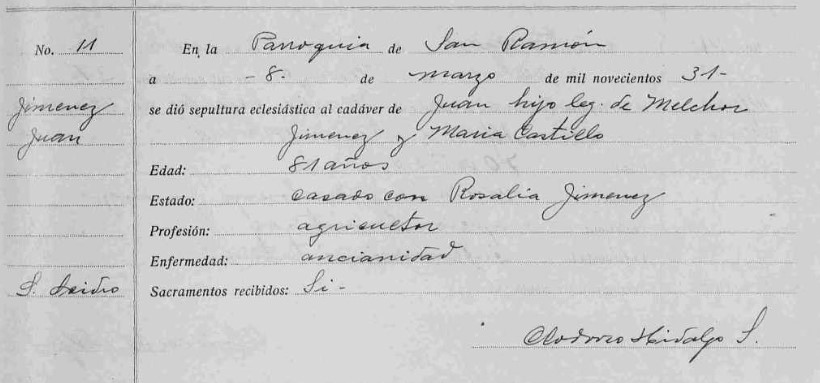 No. 11
En la Parroquia de San Ramón
a -8- de marzo de mil novecientos 31-
Jimenez
Juan
se dió sepultura eclesiástica al cadáver de Juan hijo leg. de Melchor
Jimenez y Maria Castillo
Edad: 81 años
Estado: casado con Rosalia Jimenez
Profesión: agricultor
Enfermedad: ancianidad
S. Isidro
Sacramentos recibidos: Si-
Clodoveo Hidalgo S.